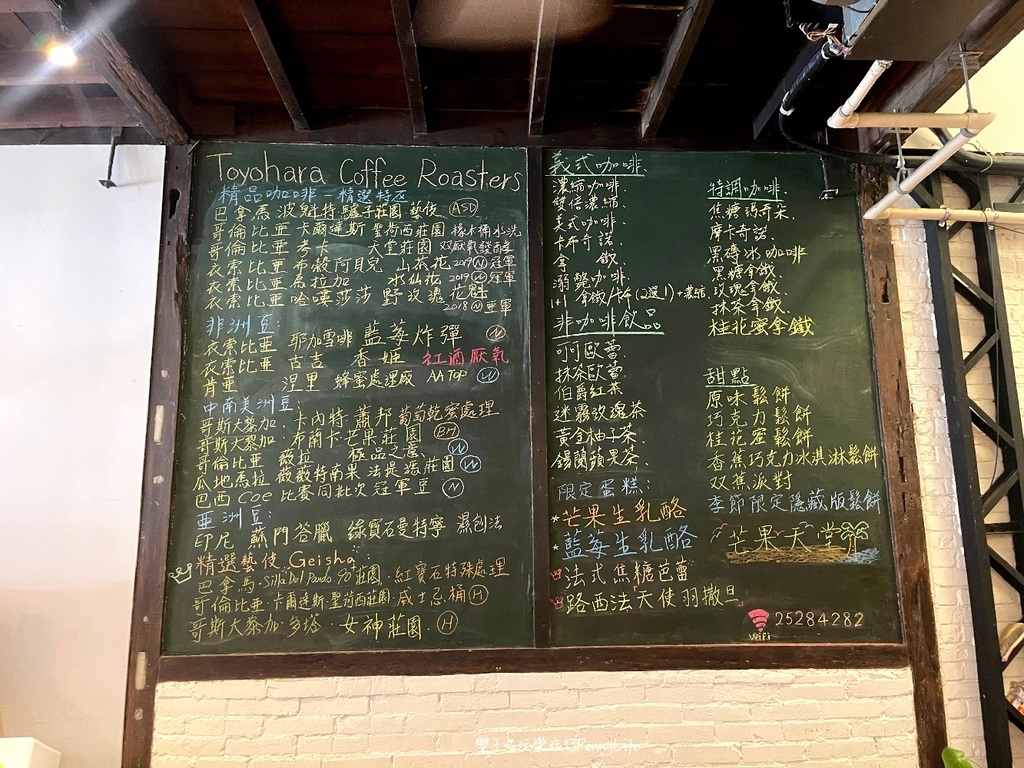 Toyohara Coffee Roasters
精品咖啡-精選特区
巴拿馬 波魁特 驢子莊園 藝伎 ASD
哥倫比亞 卡爾達斯 聖荷西莊園 橡木桶水洗
哥倫比亞 考卡 天堂莊園 双厭氧發酵
衣索比亞 布穀阿貝兒 山茶花 2019 N 冠軍
衣索比亞 馬拉加 水仙花 2019 W 冠軍
衣索比亞 哈嘜莎莎 野玫瑰花魁
2018 N 亞軍
非洲豆:
衣索比亞 耶加雪啡 藍莓炸彈 N
衣索比亞 古吉 香姬 紅酒厭氧
肯亞 涅里 蜂蜜處理廠 AA TOP W
中南美洲豆:
哥斯大黎加. 卡內特 蕭邦 葡萄乾蜜處理
哥斯大黎加. 布蘭卡芒果莊園 BH
哥倫比亞 薇拉 極品之意. W
瓜地馬拉 薇薇特南果 法提瑪莊園 W
巴西 COE 比賽同批次冠軍豆 N
亞洲豆:
印尼 蘇門答臘 綠寶石曼特寧 濕刨法
精選藝伎 Geisha:
巴拿馬. Silla Del Pando 90 莊園. 紅寶石特殊處理
哥倫比亞. 卡爾達斯. 聖荷西莊園. 威士忌桶 H
哥斯大黎加. 多塔. 女神莊園. H
義式咖啡.
濃縮咖啡.
雙倍濃縮.
美式咖啡.
卡布奇諾.
拿 鐵.
溺斃咖啡.
1+1 拿鐵/卡布(2選1)+濃縮.
非咖啡飲品
可可歐蕾.
抹茶歐蕾.
伯爵紅茶
迷霧玫瑰茶
黃金柚子茶.
錫蘭蘋果茶.
限定蛋糕:
*芒果生乳酪
*藍莓生乳酪
法式焦糖芭蕾
路西法「天使羽撒旦
特調咖啡.
焦糖瑪奇朵.
摩卡奇諾.
黑磚冰咖啡
黑糖拿鐵.
玫瑰拿鐵.
抹茶拿鐵.
桂花蜜拿鐵
甜點
原味鬆餅
巧克力鬆餅
桂花蜜鬆餅
香蕉巧克力冰淇淋鬆餅
双蕉派對
季節限定隱藏版鬆餅
芒果天堂
WiFi 25284282